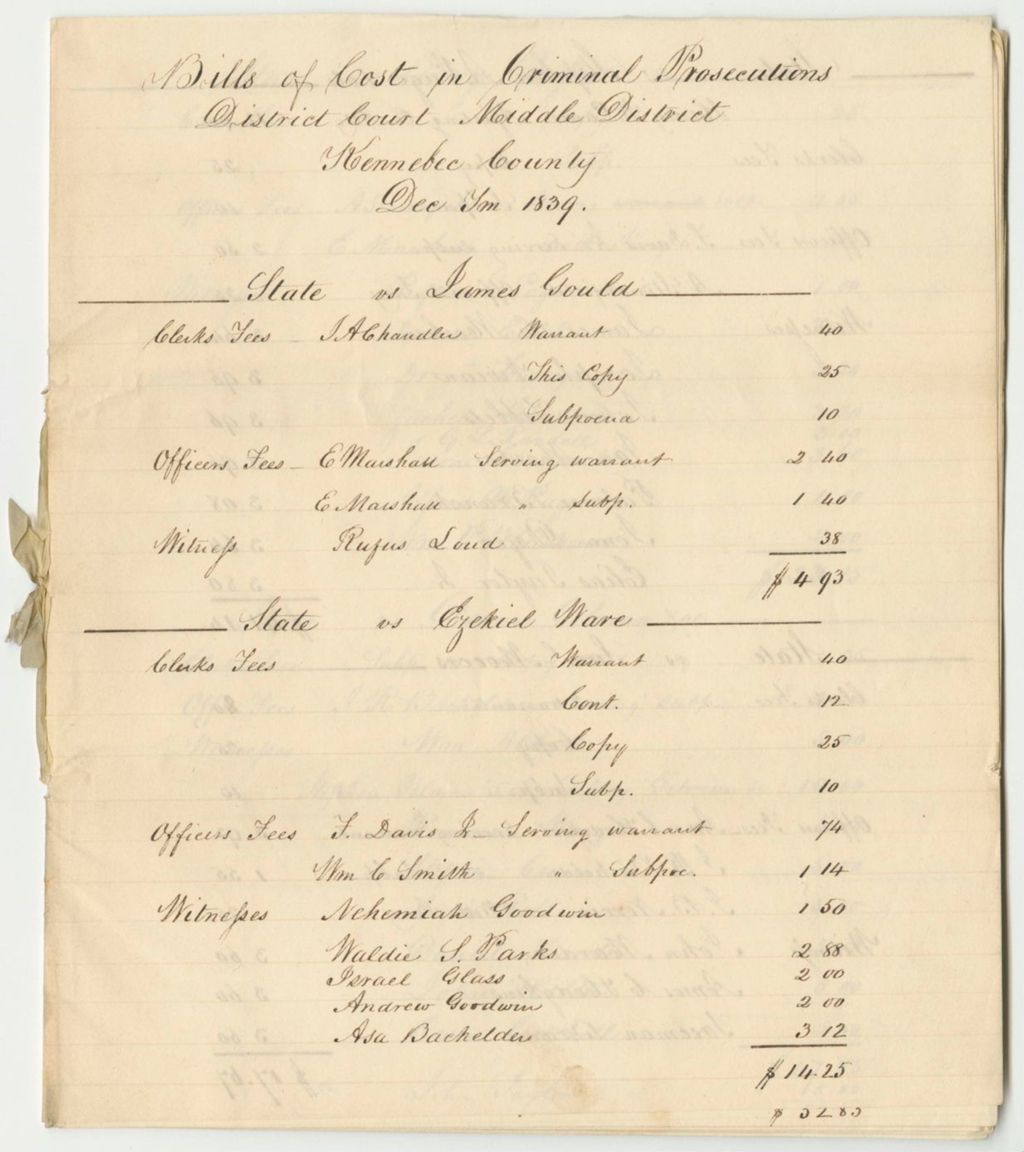 Bills of Cost in Criminal Prosecutions
District Court Middle District
Kennebec County
Dec Tm 1839.
State vs James Gould
Clerks Fees J A Chandler Warrant 40
This Copy 25
Subpoena 10
Officers Fees E Marshall Serving warrant 2 40
E Marshall " Subp. 1 40
Witness Rufus Loud 38
$ 4 93
State vs Ezekiel Ware
Clerks Fees Warrant 40
Cont. 12
Copy 25
Subp. 10
Officers Fees F. Davis Jr Serving warrant 74
Wm C Smith " Subpoe. 1 14
Witnesses Nehemiah Goodwin 1 50
Waldie S. Parks 2 88
Israel Glass 2 00
Andrew Goodwin 2 00
Asa Bachelder 3 12
$ 14.25